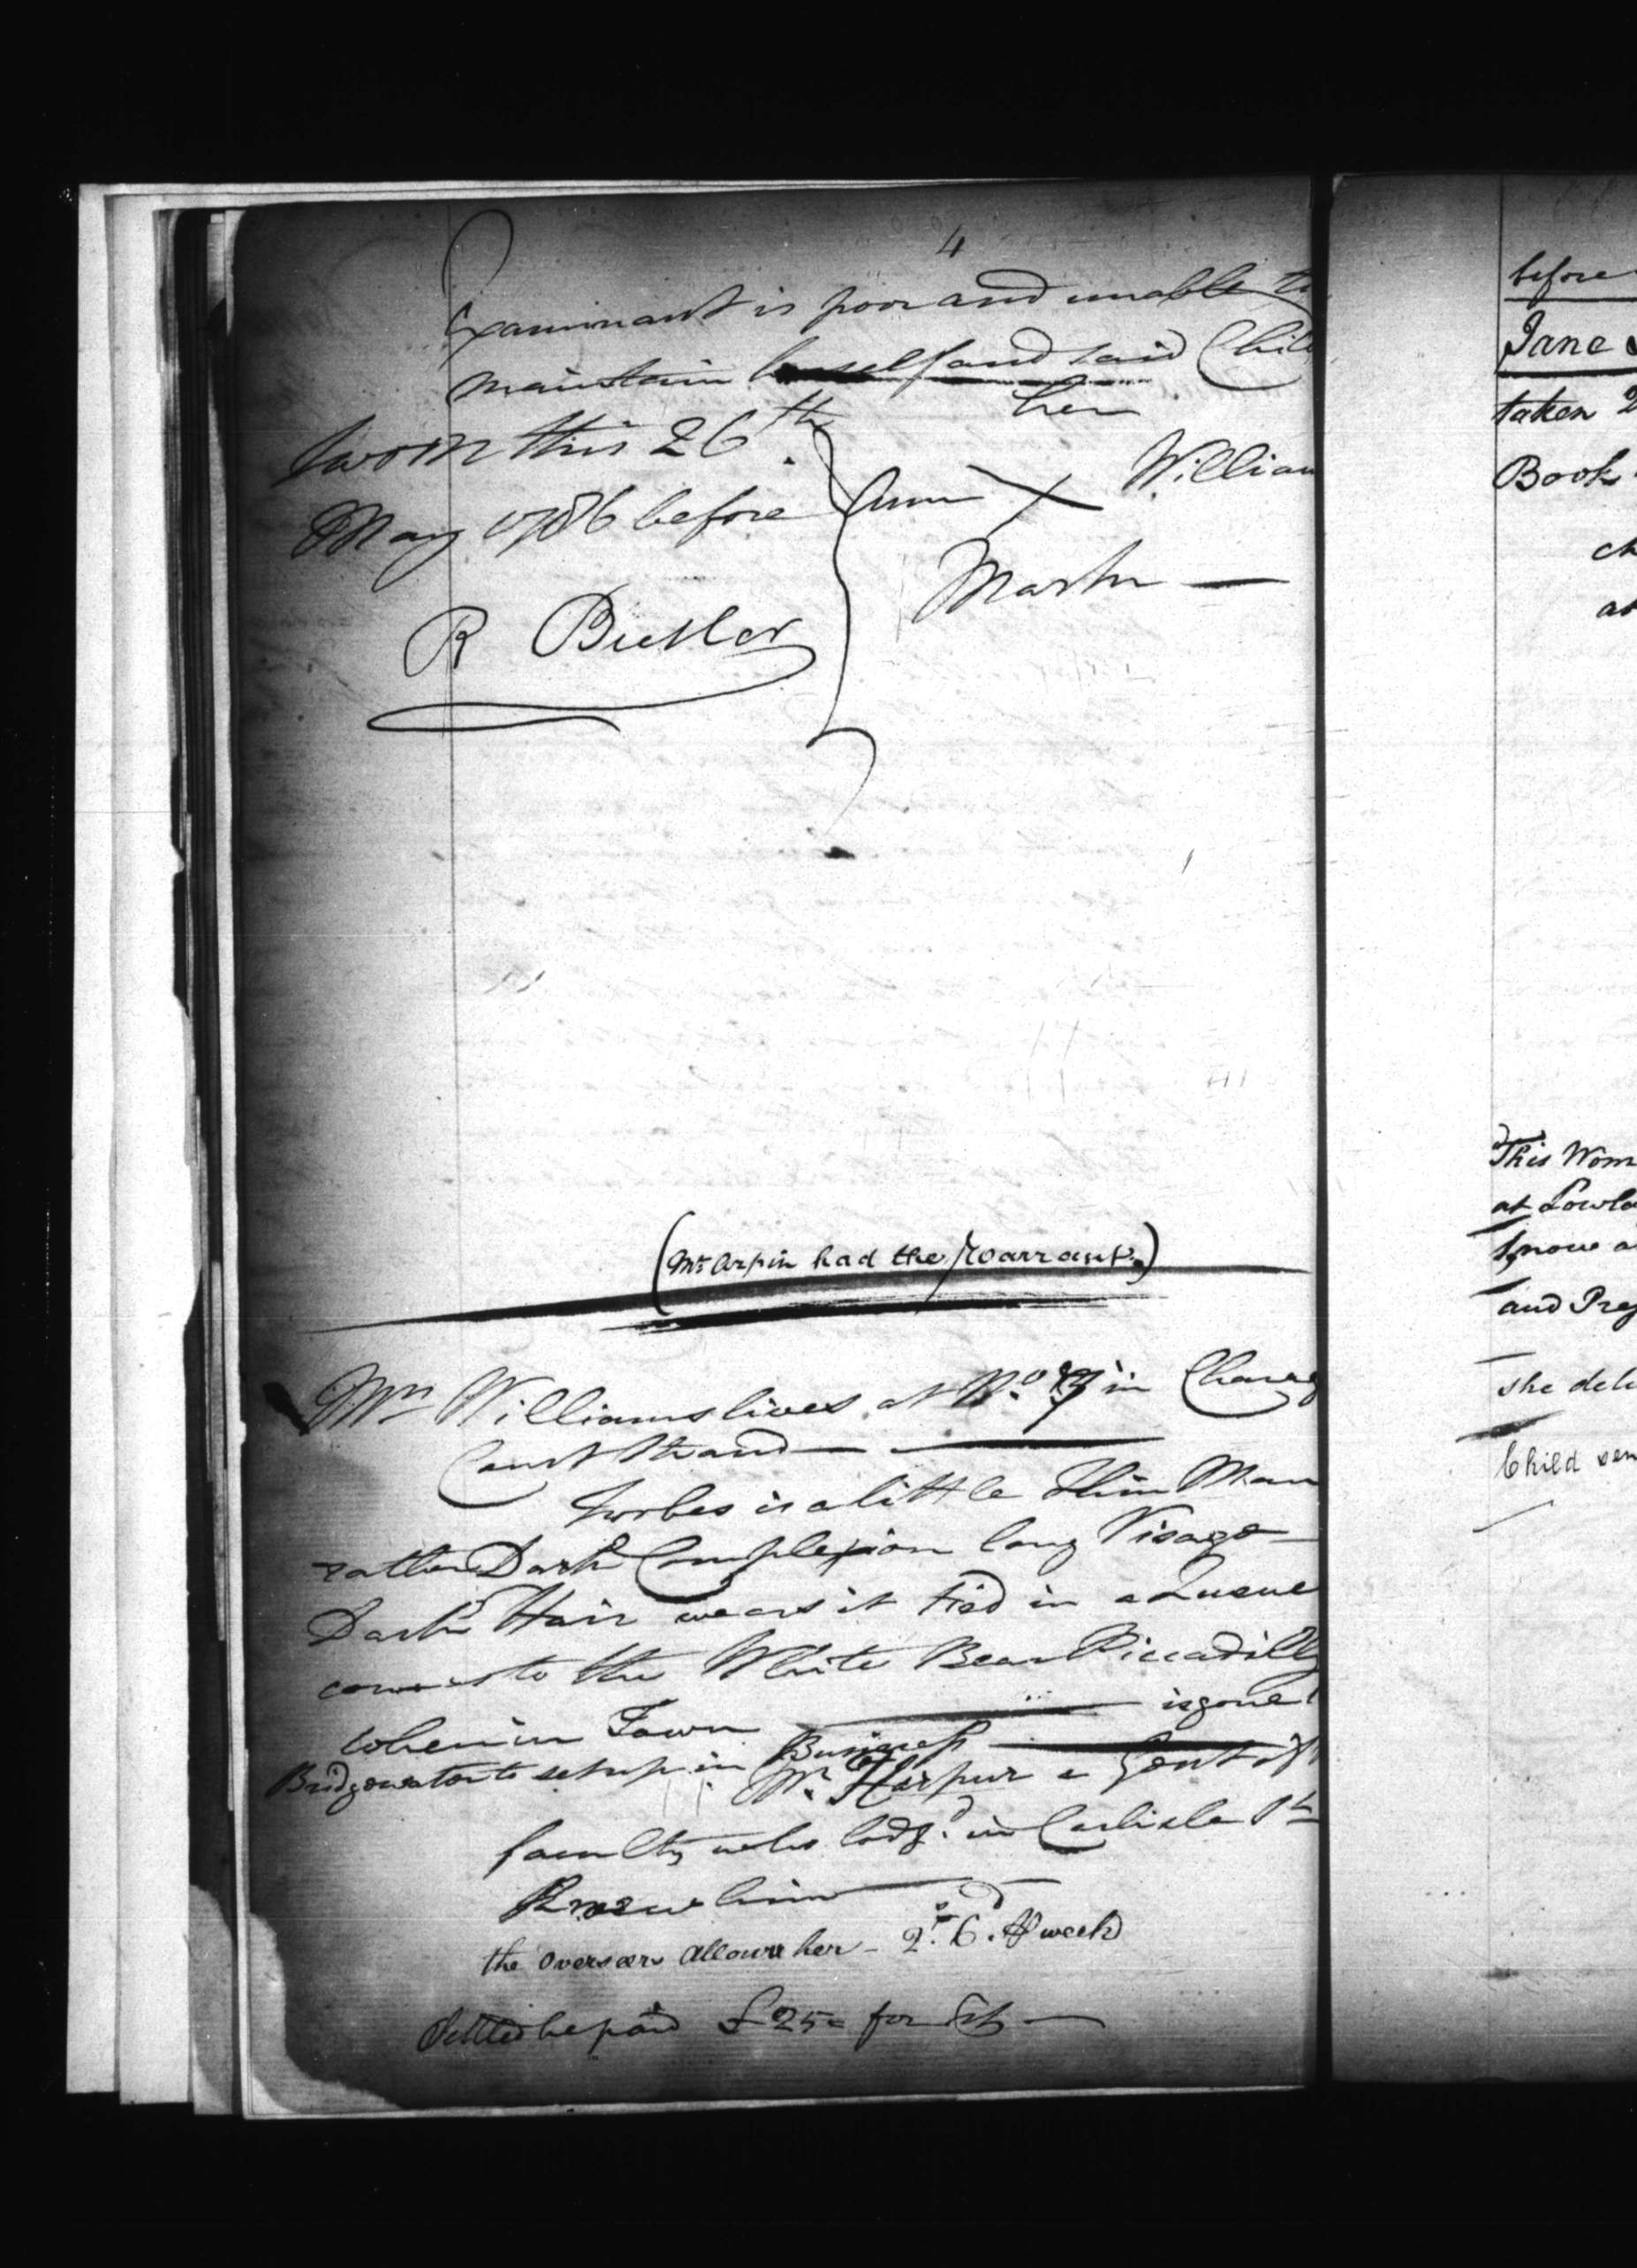 4
Examinant is poor and unable to
maintain herself and said Child
Sworn this 26th her
May 1786 before Ann X William
Mark —
R Butler
(Mr Arpin had the Warrant.)
Mrs Williams lives at No. in
Court Strand —
Forbes is a little thin Man
rather Dark Complexion long Visage
Dark Hair wears it tied in a Queue
comes to the White Bear Piccadilly
when in Town — is gone
Bridgewater to set up in Business —
Mr. Harpur a Gent of
faculty who lodg'd in Carlisle St
Knows him —
the Overseers Allow her - 2s. 6d. P week
Settled he paid £25 = for —
before
Jane
taken
Book
ch
at
This Wom
at
know
and
she
Child